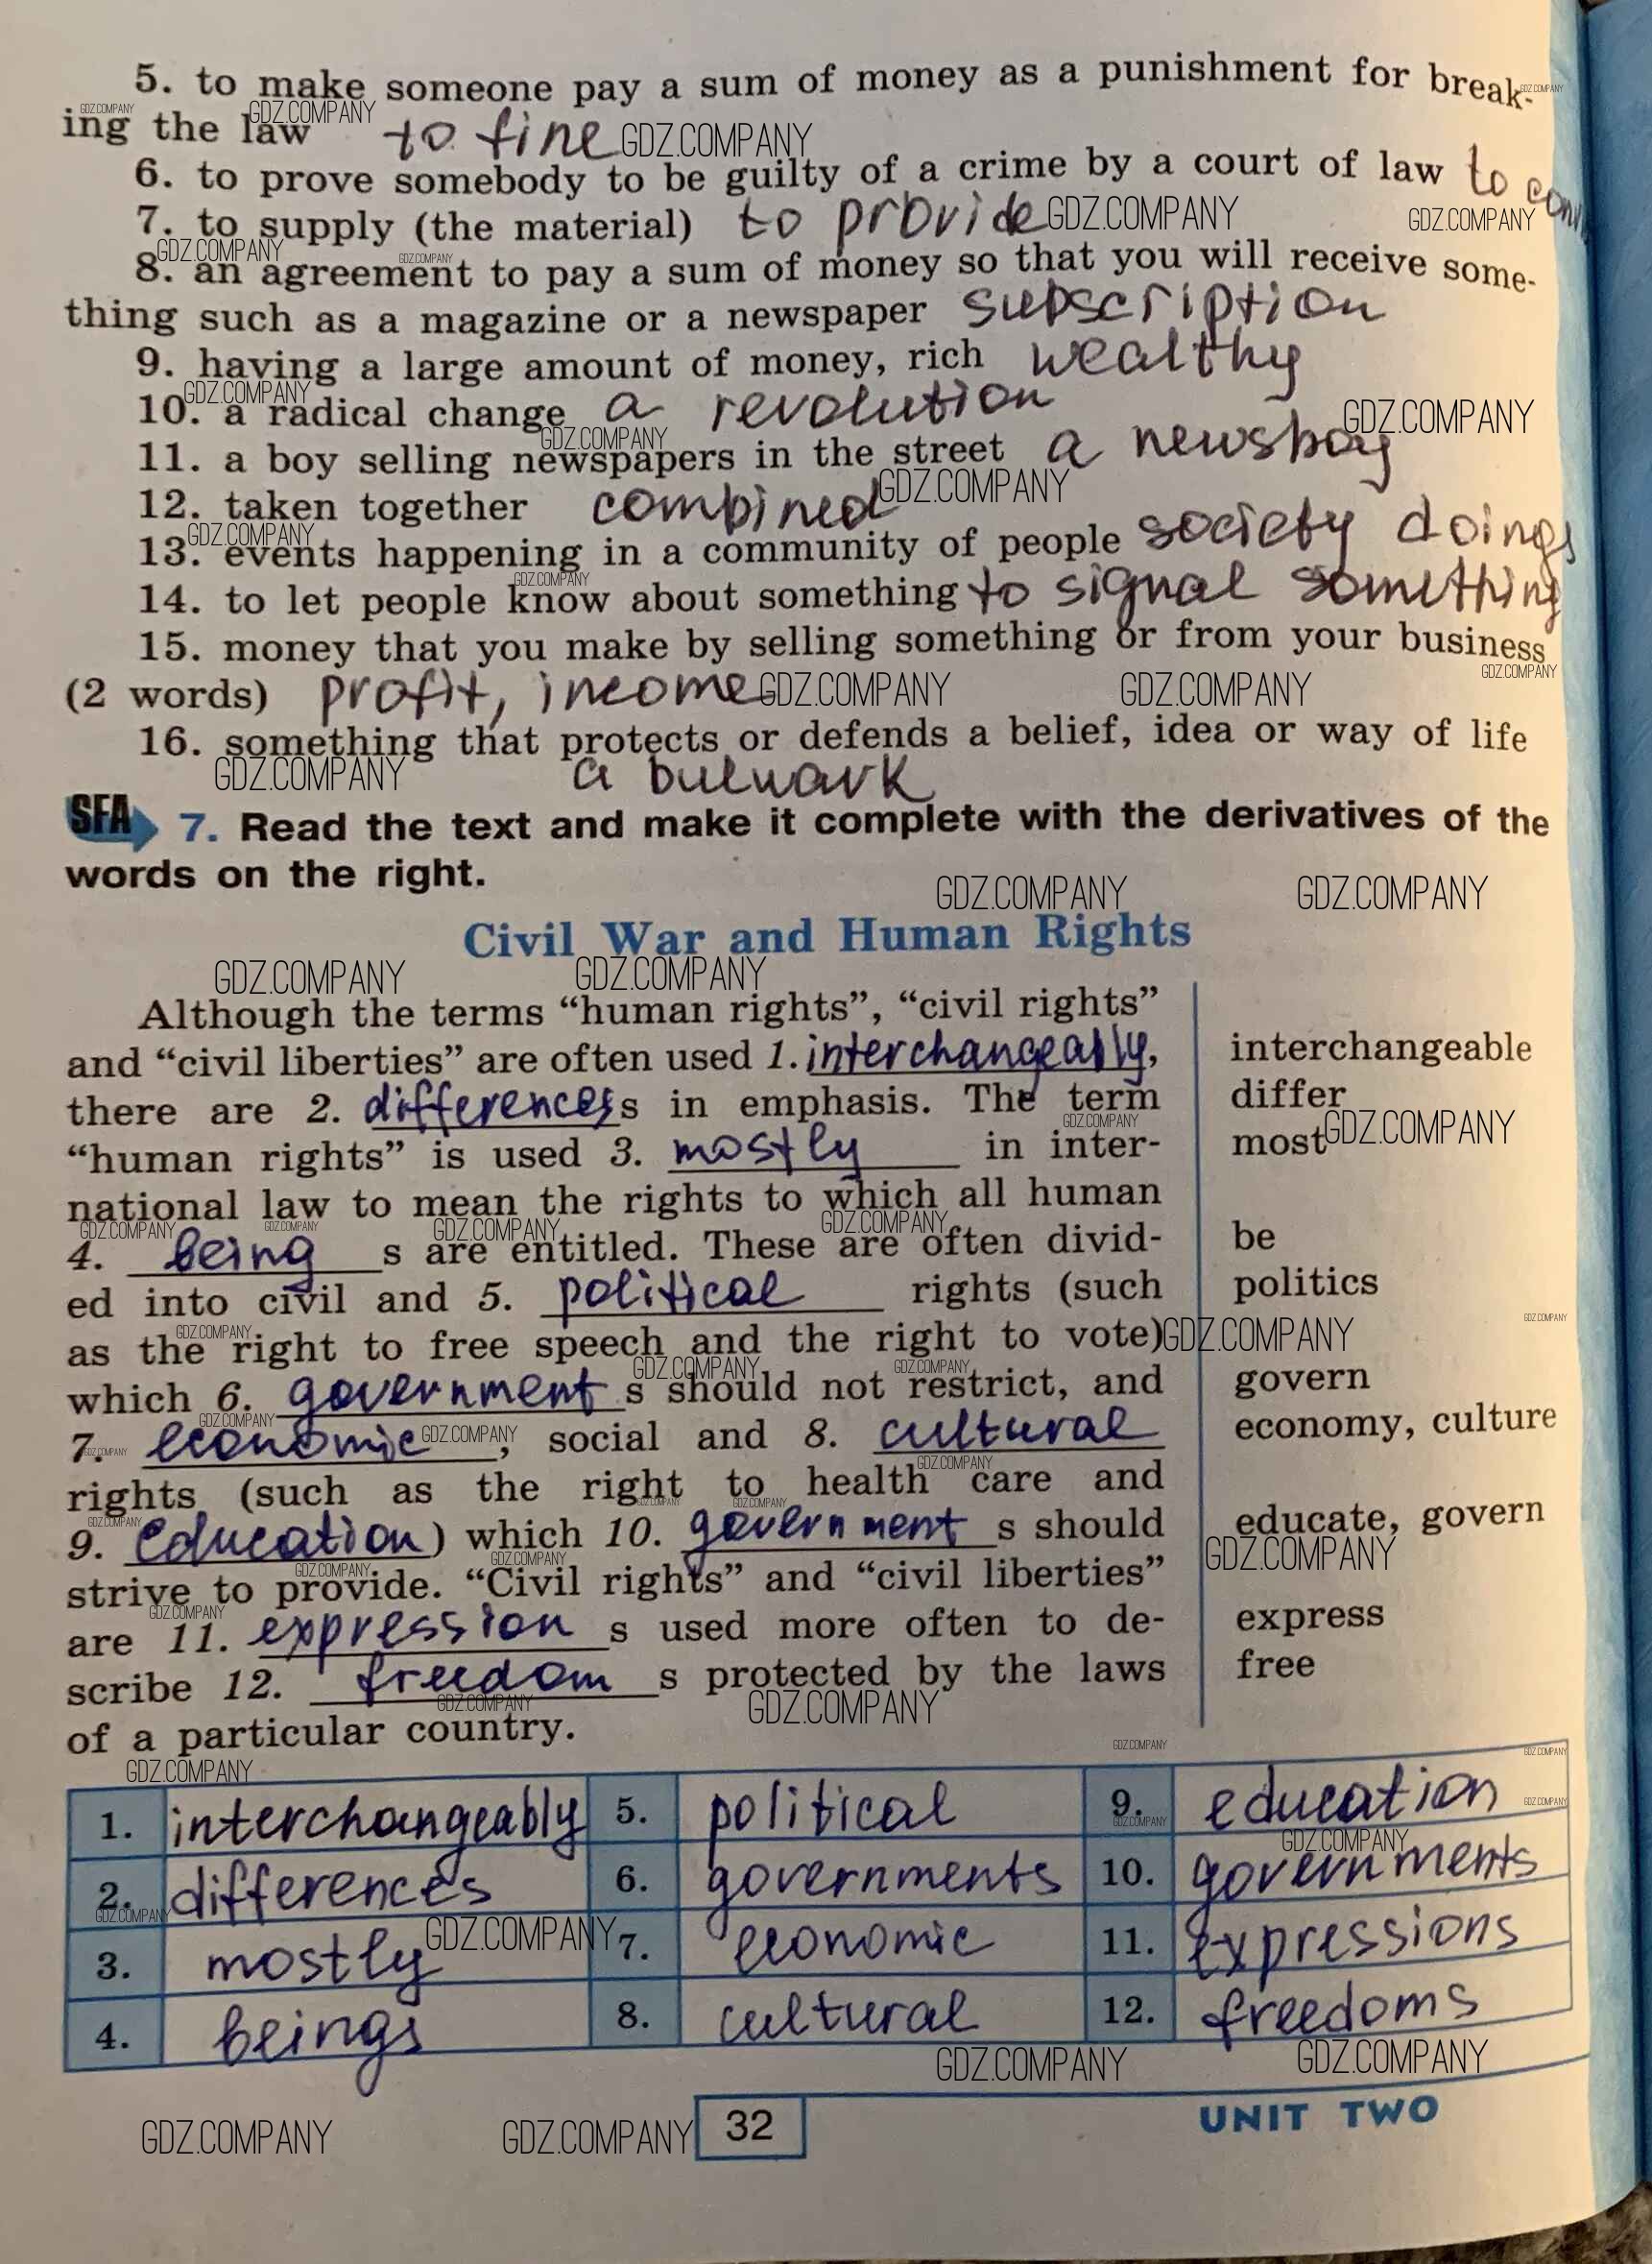 5. to make someone pay a sum of money as a punishment for break-
ing the law to fine
6. to prove somebody to be guilty of a crime by a court of law to
7. to supply (the material) to provide
8. an agreement to pay a sum of money so that you will receive some-
thing such as a magazine or a newspaper subscription
9. having a large amount of money, rich wealthy
10. a radical change a revolution
11. a boy selling newspapers in the street a newsboy
12. taken together combined
13. events happening in a community of people society doings
14. to let people know about something to signal something
15. money that you make by selling something or from your business
(2 words) profit, income
16. something that protects or defends a belief, idea or way of life
a bulwark
SFA 7. Read the text and make it complete with the derivatives of the
words on the right.
Civil War and Human Rights
Although the terms “human rights”, “civil rights”
and “civil liberties” are often used 1. interchangeably, interchangeable
there are 2. differences s in emphasis. The term differ
“human rights” is used 3. mostly in inter- most
national law to mean the rights to which all human
4. being s are entitled. These are often divid- be
ed into civil and 5. political rights (such politics
as the right to free speech and the right to vote)
which 6. government s should not restrict, and govern
7. economic, social and 8. cultural economy, culture
rights (such as the right to health care and
9. education) which 10. government s should educate, govern
strive to provide. “Civil rights” and “civil liberties”
are 11. expression s used more often to de- express
scribe 12. freedom s protected by the laws free
of a particular country.
1. interchangeably 5. political 9. education
2. differences 6. governments 10. governments
3. mostly 7. economic 11. expressions
4. beings 8. cultural 12. freedoms
32 UNIT TWO
GDZ.COMPANY